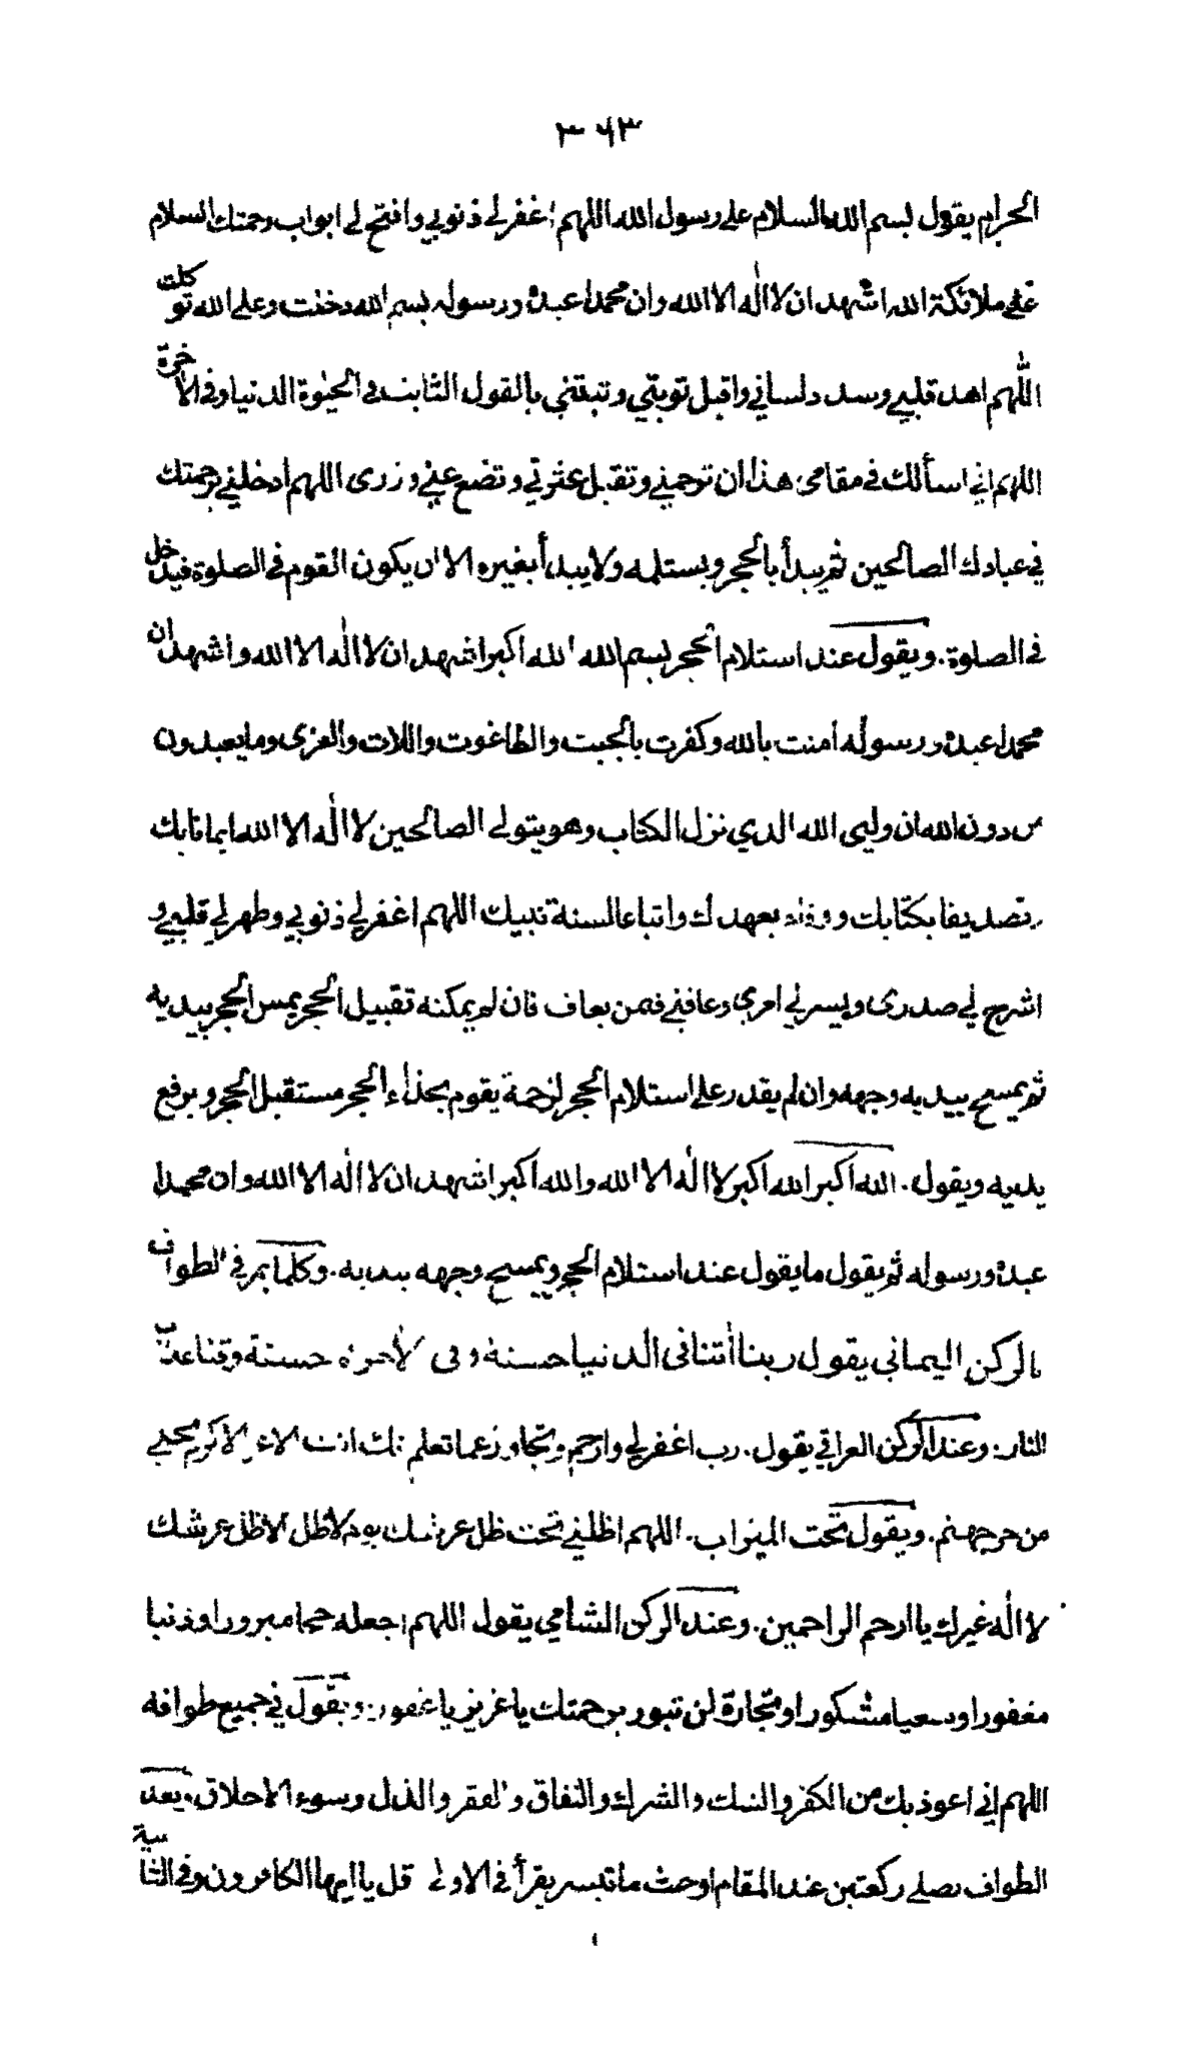 ٣٦٣
الحرام يقول بسم الله والسلام على رسول الله اللهم اغفر لي ذنوبي وافتح لي ابواب رحمتك السلام
على ملائكة الله اشهد ان لا اله الا الله وان محمدا عبده ورسوله بسم الله دخلت وعلى الله توكلت
اللهم اهد قلبي وسدد لساني واقبل توبتي وثبتني بالقول الثابت في الحيوة الدنيا وفي الاخرة
اللهم اني اسألك في مقامي هذا ان ترحمني وتقبل عثرتي وتضع عني وزري اللهم ادخلني برحمتك
في عبادك الصالحين ثم يبدأ بالحجر ويستلمه ولا يبدأ بغيره الا ان يكون القوم في الصلوة فيدخل
في الصلوة. ويقول عند استلام الحجر بسم الله الله اكبر اشهد ان لا اله الا الله واشهد ان
محمدا عبده ورسوله امنت بالله وكفرت بالجبت والطاغوت واللات والعزى وما يعبدون
من دون الله ان وليي الله الذي نزل الكتاب وهو يتولى الصالحين لا اله الا الله ايمانا بك
وتصديقا بكتابك ووفاء بعهدك واتباعا لسنة نبيك اللهم اغفر لي ذنوبي وطهر لي قلبي و
اشرح لي صدري ويسر لي امري وعافني فيمن يعاف فان لم يمكنه تقبيل الحجر يمس الحجر بيديه
ثم يمسح بيديه وجهه وان لم يقدر على استلام الحجر لزحمة يقوم بحذاء الحجر مستقبل الحجر ويرفع
يديه ويقول. الله اكبر الله اكبر لا اله الا الله والله اكبر اشهد ان لا اله الا الله وان محمدا
عبده ورسوله ثم يقول ما يقول عند استلام الحجر ويمسح وجهه بيديه. وكلما يمر في الطواف
بالركن اليماني يقول ربنا أتنا في الدنيا حسنة وفي الأخرة حسنة وقنا عذاب
النار. وعند الركن العراقي يقول. رب اغفر لي وارحم وتجاوز عما تعلم انك انت الاعز الاكرم نجني
من حر جهنم. ويقول تحت الميزاب. اللهم اظلني تحت ظل عرشك يوم لا ظل الا ظل عرشك
لا اله غيرك يا ارحم الراحمين. وعند الركن الشامي يقول اللهم اجعله حجا مبرورا وذنبا
مغفورا وسعيا مشكورا وتجارة لن تبور برحمتك يا عزيز يا غفور. ويقول في جميع طوافه
اللهم اني اعوذ بك من الكفر والشك والشرك والنفاق والفقر والذل وسوء الاخلاق. بعد
الطواف يصلي ركعتين عند المقام او حيث ما تيسر يقرأ في الاولى قل يا ايها الكافرون وفي الثانية